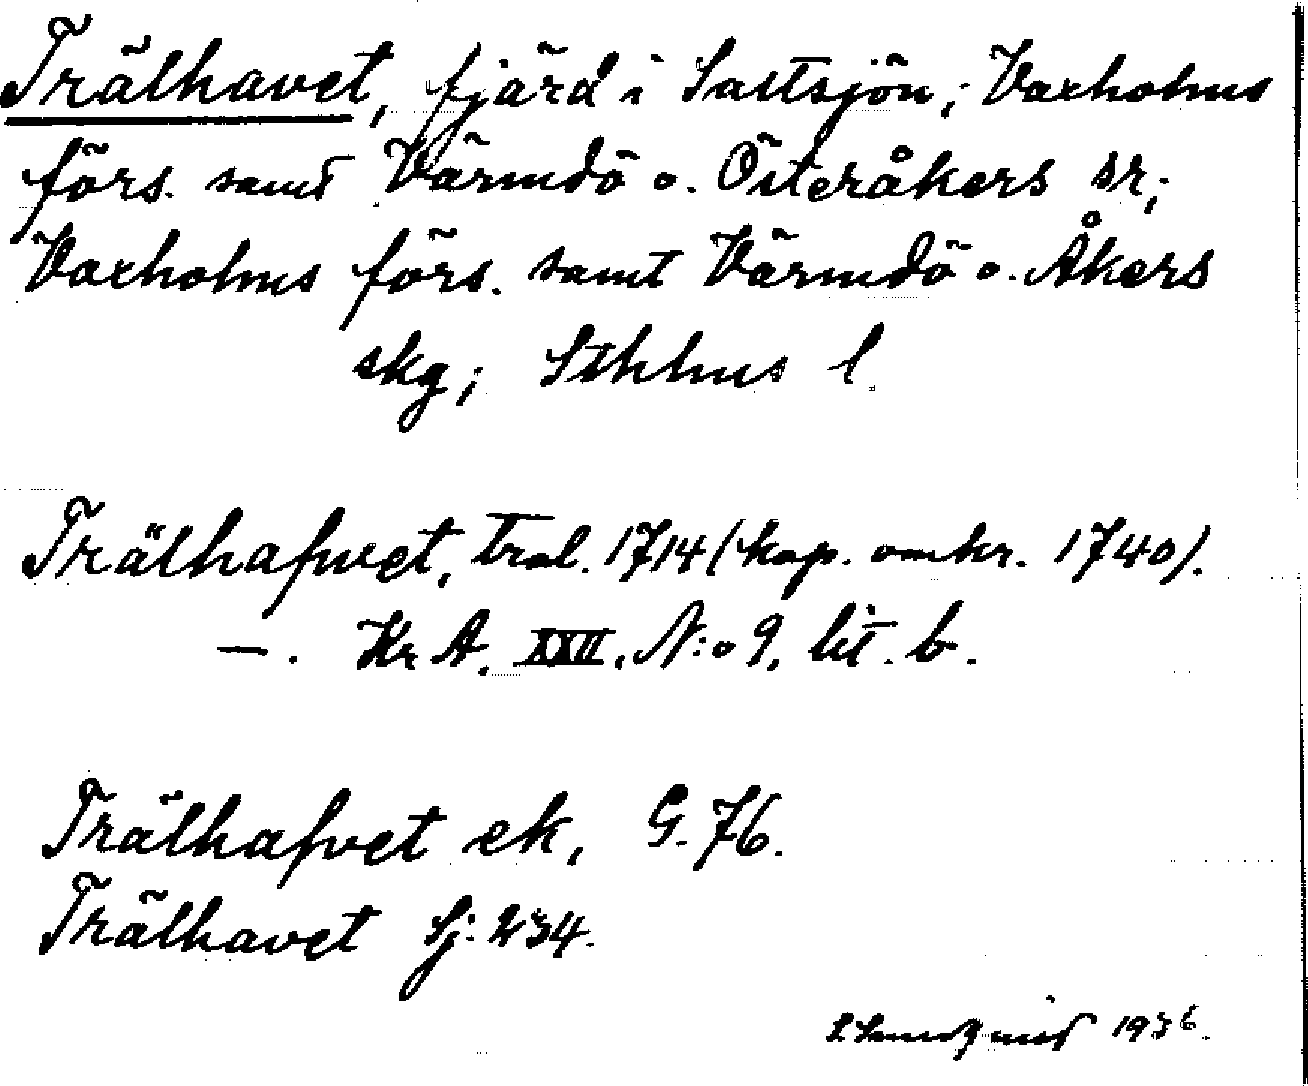 Trälhavet, fjärd i Saltsjön; Vaxholms
förs. samt Värmdö o. Österåkers sr;
Vaxholms förs. samt Värmdö o. Åkers
skg; Sthlms l.
Trälhafwet, Tral. 1714 (kop. omkr. 1740).
—. Kr A. XXII. N:o 9, lit. b.
Trälhafvet ek, G. 76.
Trälhavet Sj: 234.
1936.